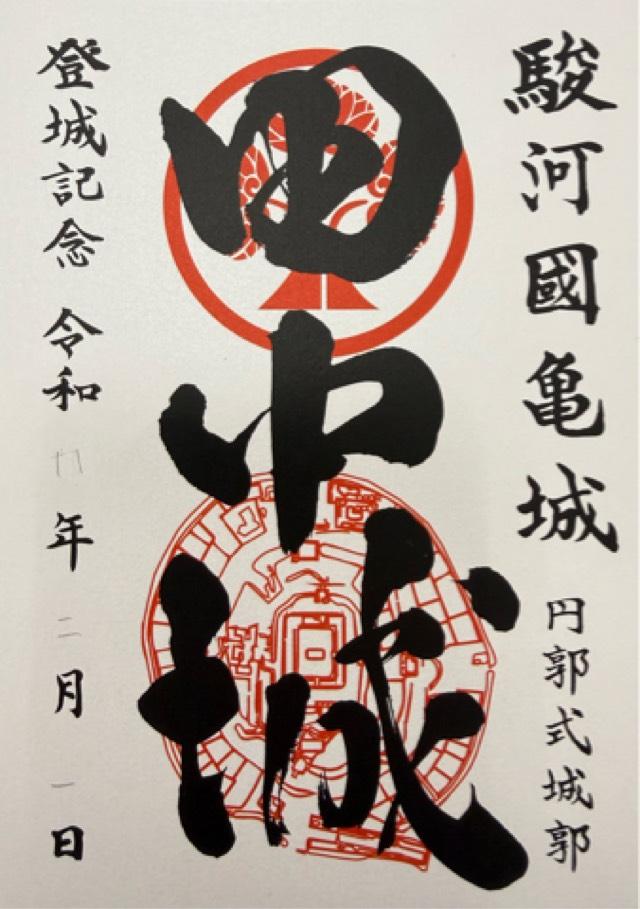 駿河國亀城 円郭式城郭
田中城
登城記念 令和 年 二月 一日